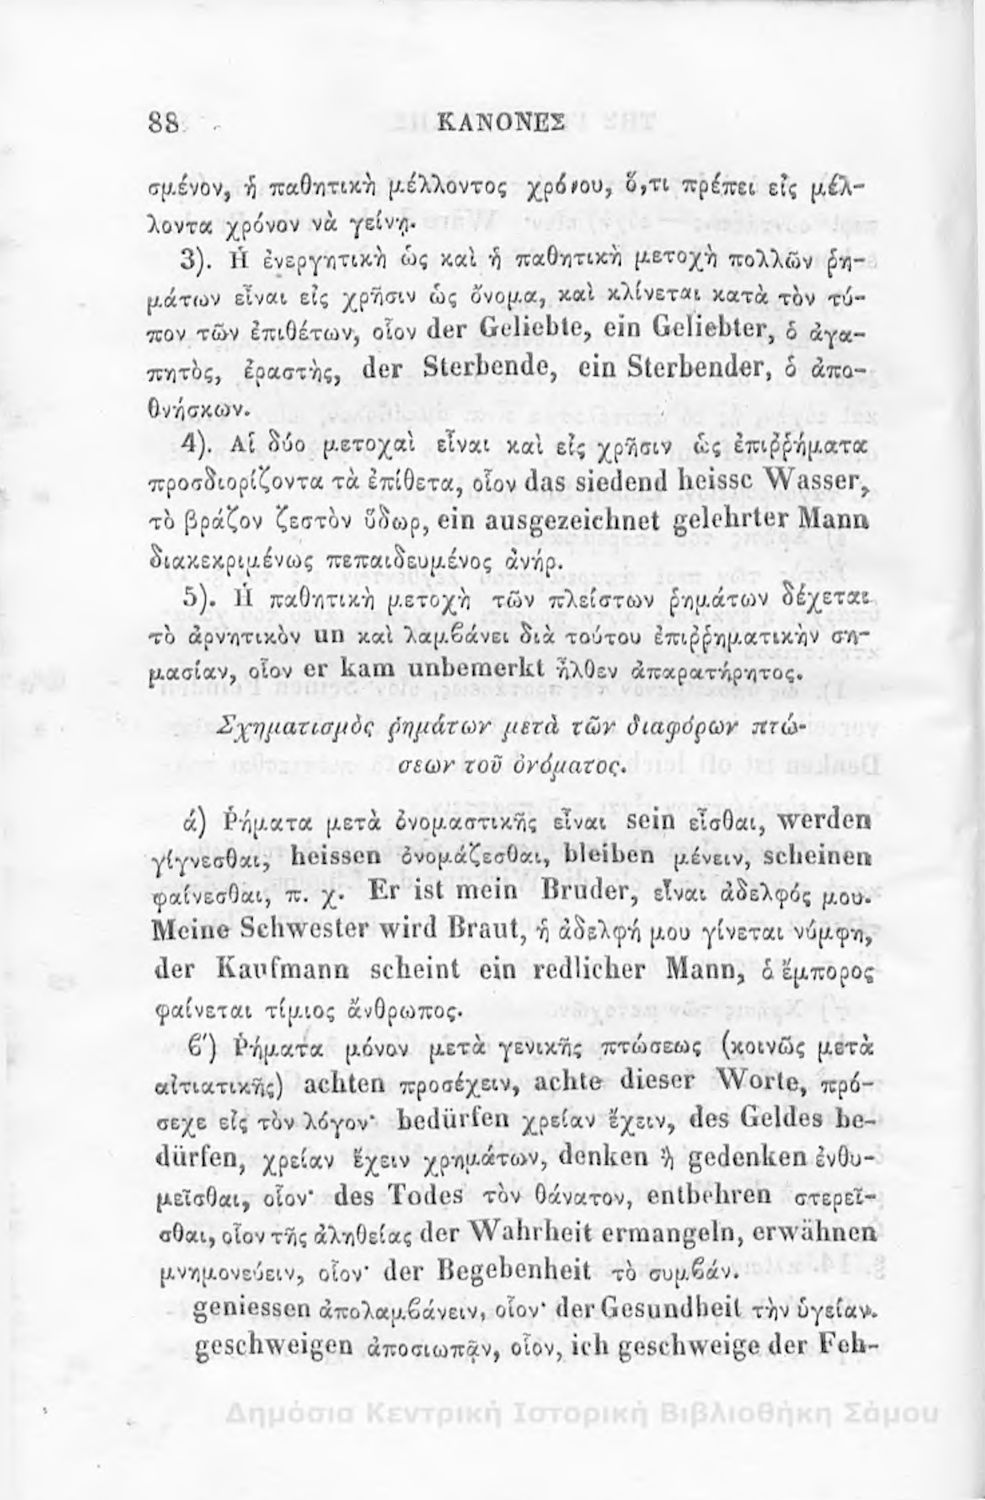 88 ΚΑΝΟΝΕΣ
σμένον, ἡ παθητικὴ μέλλοντος χρόνου, ὅ,τι πρέπει εἰς μέλ-
λοντα χρόνον νὰ γείνῃ.
3). Ἡ ἐνεργητικὴ ὡς καὶ ἡ παθητικὴ μετοχὴ πολλῶν ῥη-
μάτων εἶναι εἰς χρῆσιν ὡς ὄνομα, καὶ κλίνεται κατὰ τὸν τύ-
πον τῶν ἐπιθέτων, οἷον der Geliebte, ein Geliebter, ὁ ἀγα-
πητὸς, ἐραστὴς, der Sterbende, ein Sterbender, ὁ ἀπο-
θνήσκων.
4). Αἱ δύο μετοχαὶ εἶναι καὶ εἰς χρῆσιν ὡς ἐπιῤῥήματα
προσδιορίζοντα τὰ ἐπίθετα, οἷον das siedend heisse Wasser,
τὸ βράζον ζεστὸν ὕδωρ, ein ausgezeichnet gelehrter Mann
διακεκριμένως πεπαιδευμένος ἀνήρ.
5). Ἡ παθητικὴ μετοχὴ τῶν πλείστων ῥημάτων δέχεται
τὸ ἀρνητικὸν un καὶ λαμϐάνει διὰ τούτου ἐπιῤῥηματικὴν ση-
μασίαν, οἷον er kam unbemerkt ἦλθεν ἀπαρατήρητος.
Σχηματισμὸς ῥημάτων μετὰ τῶν διαφόρων πτώ-
σεων τοῦ ὀνόματος.
ά) Ῥήματα μετὰ ὀνομαστικῆς εἶναι sein εἶσθαι, werden
γίγνεσθαι, heissen ὀνομάζεσθαι, bleiben μένειν, scheinen
φαίνεσθαι, π. χ. Er ist mein Bruder, εἶναι ἀδελφός μου.
Meine Schwester wird Braut, ἡ ἀδελφή μου γίνεται νύμφη,
der Kaufmann scheint ein redlicher Mann, ὁ ἔμπορος
φαίνεται τίμιος ἄνθρωπος.
ϐ') Ῥήματα μόνον μετὰ γενικῆς πτώσεως (κοινῶς μετὰ
αἰτιατικῆς) achten προσέχειν, achte dieser Worte, πρό-
σεχε εἰς τὸν λόγον· bedürfen χρείαν ἔχειν, des Geldes be-
dürfen, χρείαν ἔχειν χρημάτων, denken ἢ gedenken ἐνθυ-
μεῖσθαι, οἷον· des Todes τὸν θάνατον, entbehren στερεῖ-
σθαι, οἷον τῆς ἀληθείας der Wahrheit ermangeln, erwähnen
μνημονεύειν, οἷον· der Begebenheit τὸ συμϐάν.
geniessen ἀπολαμϐάνειν, οἷον· der Gesundheit τὴν ὑγείαν.
geschweigen ἀποσιωπᾷν, οἷον, ich geschweige der Feh-
Δημόσια Κεντρική Ιστορική Βιβλιοθήκη Σάμου